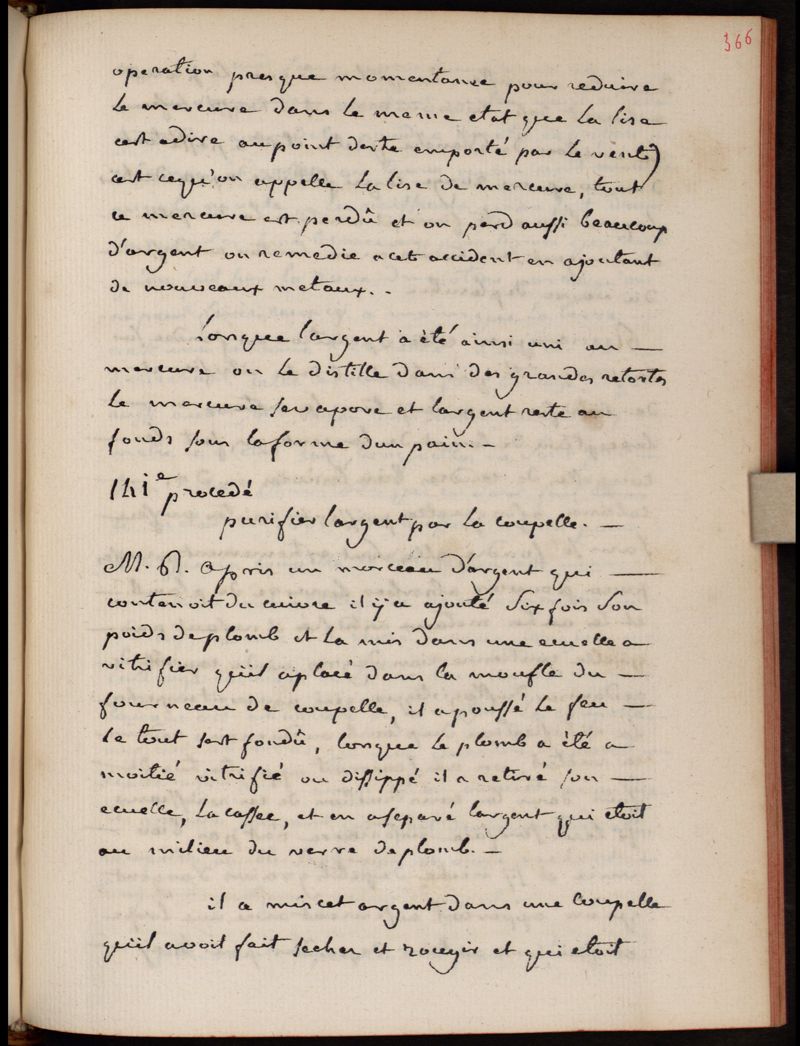 366
operation presque momentanée pour reduire
le mercure dans le meme etat que la lise
cest adire aupoint destre emporté par le vent)
cest cequ'on appelle la lise de mercure, tout
ce mercure est perdû et on perd aussi beaucoup
d'argent on remedie a cet accident en ajoutant
de nouveaux metaux..
Lorsque largent a été ainsi uni au —
mercure on le distille dans des grandes retortes
le mercure sevapore et largent reste au
fonds sous laforme dun pain. –
141e procedé
purifier largent par la coupelle. —
M. R. apris un morceau d'argent qui —
contenoit du cuivre il ij a ajouté six fois son
poids deplomb et la mis dans une ecuelle a
vitrifier quil aplacé dans la moufle du —
fourneau de coupelle, il apoussé le feu —
le tout sest fondû, lorsque le plomb a été a
moitié vitrifié ou dissippé il a retiré son —
ecuelle, lacassee, et en aseparé largent qui etoit
au milieu du verre deplomb. –
il a mis cet argent dans une coupelle
quil avoit fait secher et rougir et qui etoit